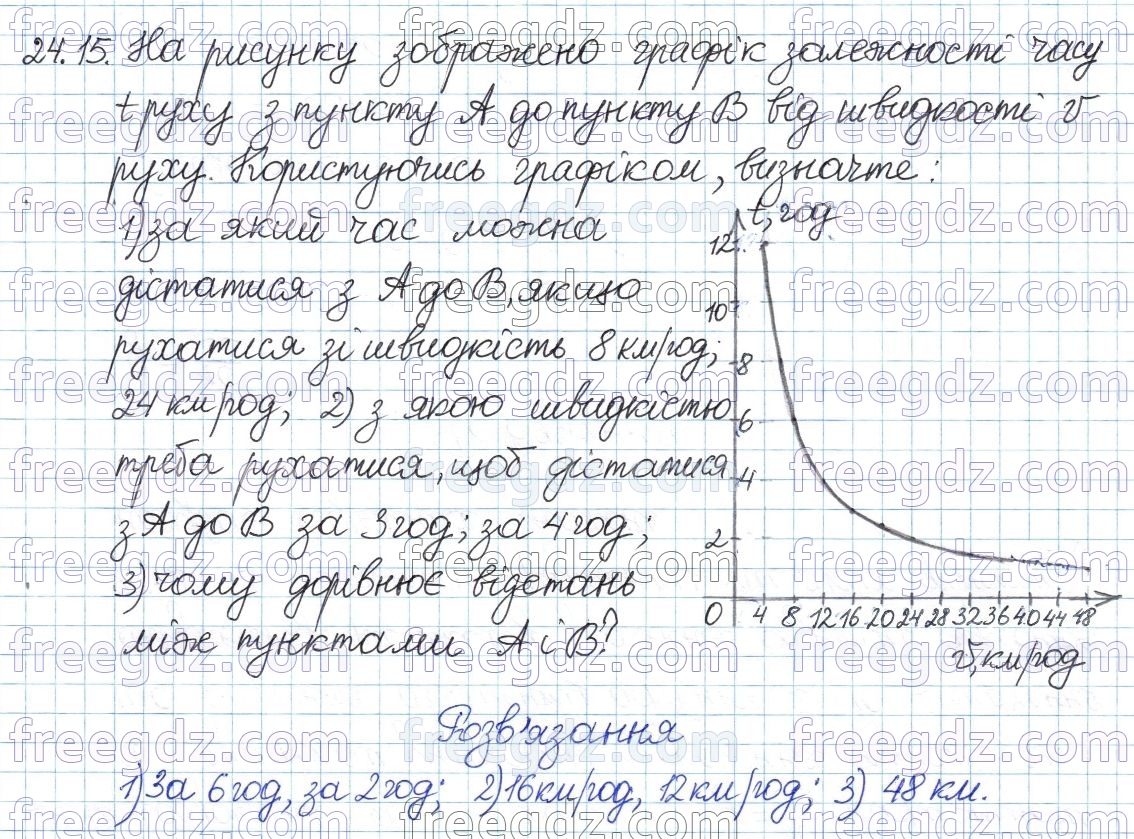 24.15. На рисунку зображено графік залежності часу
t руху з пункту А до пункту В від швидкості v
руху. Користуючись графіком, визначте:
1) за який час можна
дістатися з А до В, якщо
рухатися зі швидкість 8 км/год;
24 км/год; 2) з якою швидкістю
треба рухатися, щоб дістатися
з А до В за 3 год; за 4 год;
3) чому дорівнює відстань
між пунктами А і В?
t, год
12
10
8
6
4
2
0 4 8 12 16 20 24 28 32 36 40 44 48
v, км/год
Розв'язання
1) За 6 год, за 2 год; 2) 16 км/год, 12 км/год; 3) 48 км.
freegdz.com